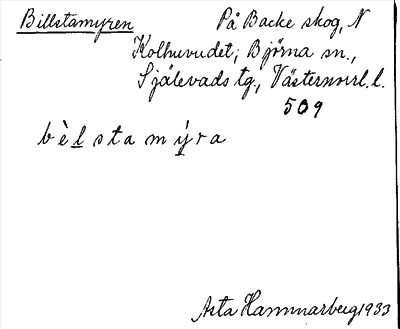 Billstamyren På Backe skog, N
Kolhuvudet; Björna sn.,
Själevads tg., Västernorrl. l.
509
bèlstamýra
Asta Hammarberg 1933